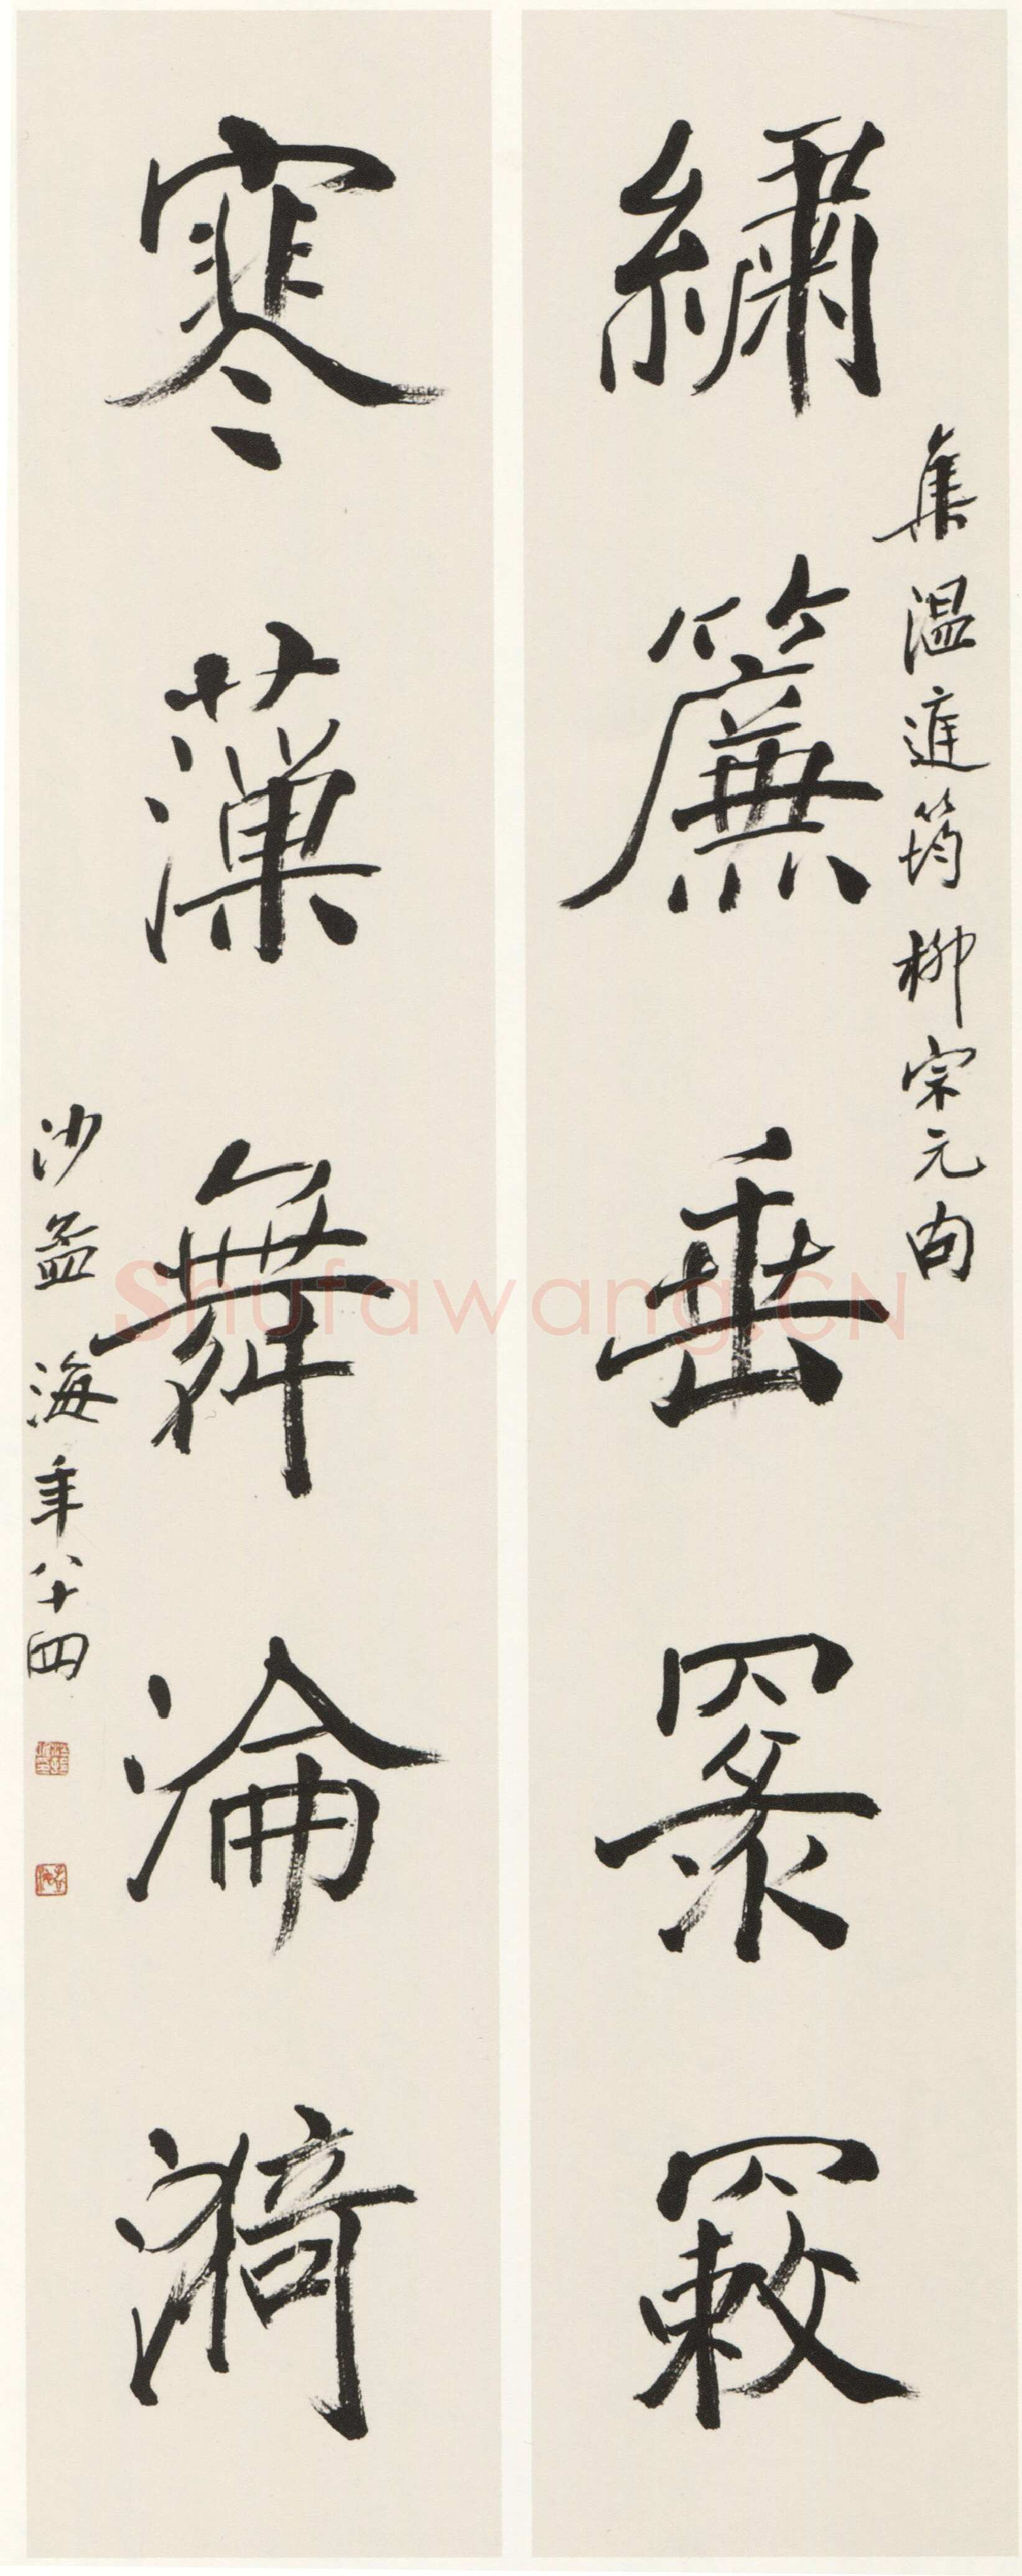 繡簾垂䍡
集温庭筠柳宗元句
寒藻舞淪漪
沙孟海年八十四
Shufawang.CN